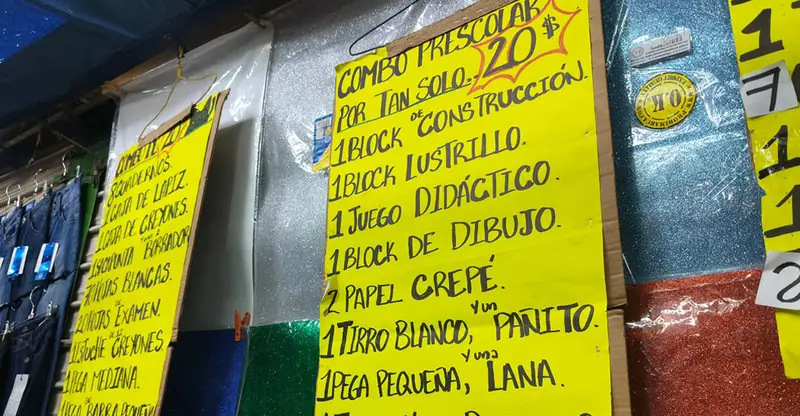 COMBO PRESCOLAR
POR TAN SOLO.. 20$
1 BLOCK DE CONSTRUCCIÓN.
1 BLOCK LUSTRILLO.
1 JUEGO DIDÁCTICO.
1 BLOCK DE DIBUJO.
2 PAPEL CREPÉ.
1 TIRRO BLANCO, Y UN PAÑITO.
1 PEGA PEQUEÑA, Y UNA LANA.
CUADERNOS.
CAJA DE LAPIZ.
CAJA DE CREYONES.
1 SACAPUNTA Y UN BORRADOR
HOJAS BLANCAS.
HOJAS DE EXAMEN.
1 ESTUCHE DE CREYONES
1 PEGA MEDIANA.
BARRA PEQUEÑA
OK